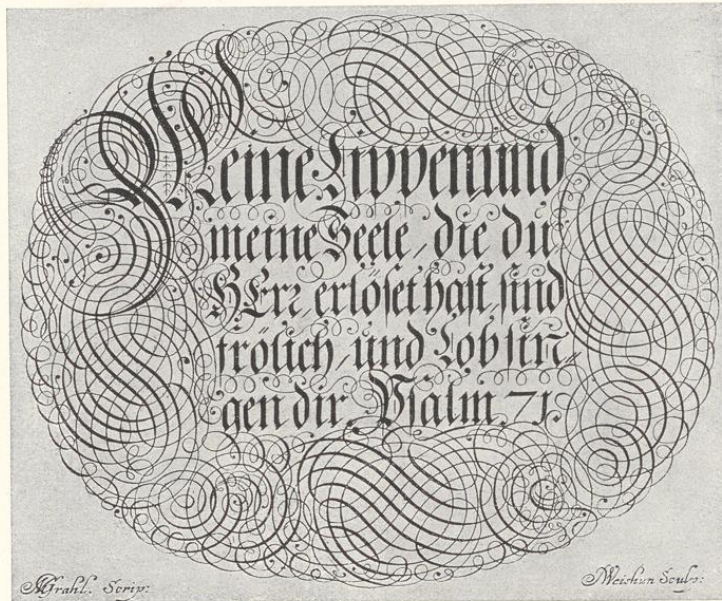 Meine Lippen und
meine Seele, die du
HErr erlöset hast, sind
frölich, und Lobsin⸗
gen dir. Psalm. 71.
MGrahl. Scrip:
NWeishun Sculp: